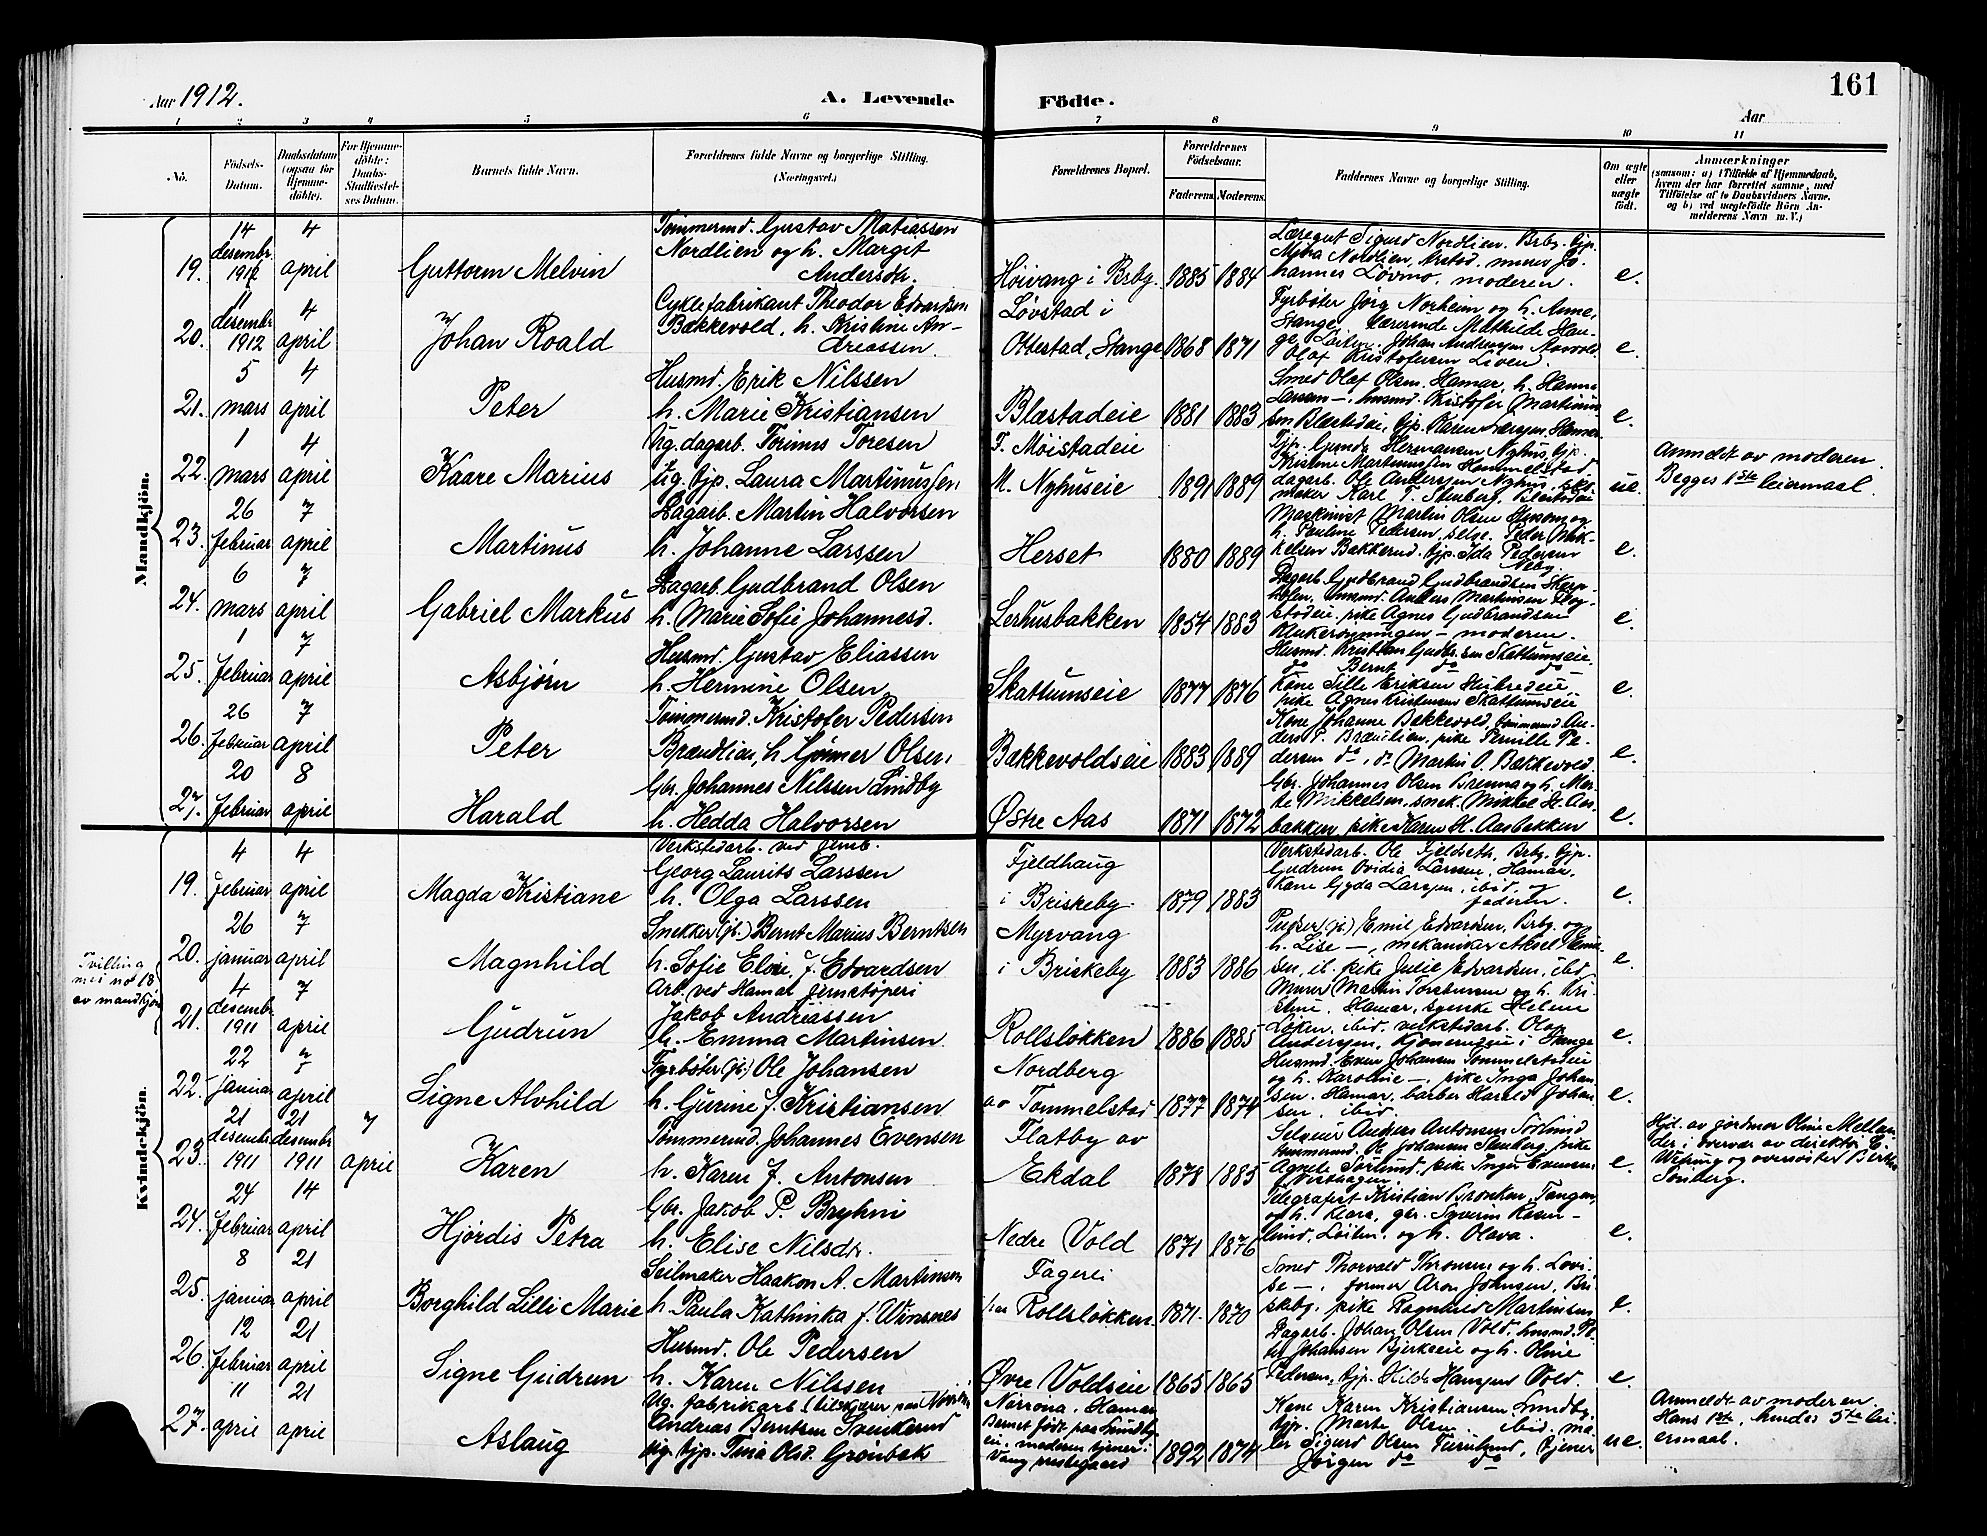 Aar 1912.
A. Levende Födte.
161
Aar
1 2 3 4 5 6 7 8 9 10 11
No.
Födsels-Datum.
Daabsdatum (ogsaa for Hjemmedöbte).
For Hjemmedöbte: Daabs-Stadfæstelses Datum.
Barnets fulde Navn.
Forældrenes fulde Navne og borgerlige Stilling. (Næringsvei.)
Forældrenes Bopæl.
Forældrenes Födselsaar.
Faderens
Moderens.
Faddernes Navne og borgerlige Stilling.
Om ægte eller uægte födt.
Anmærkninger
(saasom: a) i Tilfælde af Hjemmedaab,
hvem der har forrettet samme, med
Tilföielse af to Daabsvidners Navne.
og b) ved uægtefödte Börn Anmelderens Navn m. V.)
Mandkjön.
19. 14 desembr. 1912 4 april
Guttorm Melvin
Tømmermd. Gustav Matiassen
Nordlien og h. Margit
Anderson.
Høivang i Brsby. 1885 1884
Læregut Sigurd Nordlien. Brby. tjp.
Myra Nordlien, murer Johannes Løvmo, moderen.
e.
20. 11 desembr 1912 4 april
Johan Roald
Cyklefabrikant Theodor Edvartsen
Bækkevold, h. Kristine Andreassen.
Løvstad i
Ottestad, Stange 1868 1871
Fyrbøter Jörg Norheim og h. Anne,
Stange, Lærerinde Mathilde Hauge, Løiten. Johan Andersen Aasvold
Olaf Kristofersen Liven.
e.
21. 5 mars 4 april
Peter
Husmd. Erik Nilssen
h. Marie Kristiansen
Blæstadeie 1881 1883
Smed Olaf Olsen. Hamar, h. Hanna
Larssen –, husmd. Kristofer Martinussen Blæstadeie, tjp. Karen Larsen, Hamar.
e.
22. 1 mars 4 april
Kaare Marius
Ug. dagarb. Torinus Toresen
ug. tjp. Laura Martinussen
F. Møistadeie
M. Nyhuseie 1891 1889
Tjp. Gunda Hermansen Nyhus, tjp.
Kristine Martinussen Hommelstad
dagarb. Ole Andersen Nyhus, skomaker Karl T. Stenberg, Blæstadeie
ue.
Anmeldt av moderen.
Begges 1ste leiermaal.
23. 26 februar 7 april
Martinus
Dagarb. Martin Halvorsen
h. Johanne Larssen
Herset 1880 1889
Maskinist Martin Olsen og
h. Pauline Pedersen, selve. Peder Mikkelsen Bakkerud, tjp. Ida Pedersen
Neby.
e.
24. 6 mars 7 april
Gabriel Markus
Dagarb. Gudbrand Olsen
h. Marie Sofie Johannesd.
Lershusbakken 1854 1883
Dagarb. Gudbrand Gudbrandsen
husmd. Anders Martinsen
pike Agnes Gudbrandsen
Klukerønningen – moderen.
e.
25. 1 februar 7 april
Asbjørn
Husmd. Gustav Eliassen
h. Hermine Olsen
Skattumseie 1877 1876
Husmd. Kristian Gudbr.sen Skattumseie.
do Bernt do do
Kone Sille Eriksen
pike Agnes Kristensen Skattumseie
e.
26. 26 februar 7 april
Peter
Tømmermd. Kristofer Pedersen
Brændlien, h. Gunner Olsen
Bækkevoldseie 1883 1889
Kone Johanne Bækkevold, tømmermd. Anders P. Brændlien, pike Pernille Pedersen do, do Martin O. Bækkevold
e.
27. 20 februar 8 april
Harald
Gbr. Johannes Nilssen Lindby
h. Hedda Halvorsen
Østre Aas 1871 1872
Gbr. Johannes Olsen Brenna og h. Marte Mikkelsen, snek. Mikkel H. Aasbakken, pike Karen H. Aasbakken
e.
Kvindekjön
19. 4 februar 4 april
Magda Kristiane
Verkstedarb. ved Jernb.
Georg Laurits Larssen
h. Olga Larssen
Fjeldhaug
i Briskeby. 1879 1883
Verkstedarb. Ole Fjeldseth, Brby. tjp.
Gudrun Ovidia Larssen, Hamar,
Kone Gyda Larssen, ibid, og
faderen.
e.
Tvilling
med no 18
av mandkjøn
20. 26 januar 7 april
Magnhild
Snekker (jb.) Bernt Marius Berntsen
h. Sofie Eloie f. Edvardsen
Myrvang
i Briskeby 1883 1886
Pudser (jb.) Emil Edvardsen, Brby. og
h. Lise –, mekaniker Aksel Emilsen, ib. pike Julie Edvardsen, ibid
e.
21. 4 desembr 1911 7 april
Gudrun
Arb. ved Hamar Jernstøperi
Jakob Andreassen
h. Emma Martinsen
Rollsløkken 1886 1885
Murer Martin Torstensen og h. Kristine, Hamar, syerske Helene
Løken, ibid, verkstedarb. Olaf
Andersen, i Stange
e.
22. 22 januar 7 april
Signe Alvhild
Fyrbøter (jb.) Ole Johansen
h. Gurine f. Kristiansen
Nordberg
av Tommelstad 1877 1874
Husmd. Even Johansen Tommelstadeie
og h. Karoline –, pike Inga Johansen, Hamar, barber Harald Johansen, ibid.
e.
23. 21 desembr 1911 21 desembr 1911 7 april
Karen
Tømmermd. Johannes Evensen
h. Karen J. Antonsen
Flatby av
Ekdal 1878 1885
Selveier Anders Antonsen Sørlund
husmand. O. Johansen Stenberg, pike
Agnete Sørlund, pike Inger Evensen
e.
Hjd. av jordmor Oline Mellander i overvær av direktør E.
Wefring og oversøster Berthe
Tønberg.
24. 24 februar 14 april
Hjørdis Petra
Gbr. Jakob P. Bryhni
h. Elise Nilsdr.
Nedre Vold 1871 1876
Telegrafist Kristian Brønken, Tangen,
og h. Klara, gbr. Syverin Rosenlund, Løiten, og h. Olava.
e.
25. 8 januar 21 april
Borghild Lilli Marie
Seilmaker Haakon A. Martinsen
h. Paula Kathinka f. Winsnes
Fagerli
paa Rollsløkken 1871 1870
Smed Thorvald Thronsen og h. Lovise –, former Aron Johnsen, Briskeby, pike Ragnhild Martinsen
e.
26. 12 februar 21 april
Signe Gudrun
Husmd. Ole Pedersen
h. Karen Nilssen
Øvre Voldseie 1865 1865
Dagarb. Johan Olsen Vold, husmd. Peter Johansen Bjerkeeie og h. Oline
Pedersen, tjp. Hilda Hansen Vold.
e.
27. 11 april 21 april
Aslaug
Ug. fabrikarb.
Andreas Berntsen Svenkerud
ug. tjp. Tina Olsd. Grønbæk
Norrona, Hamar
Barnet født paa Lundbyeie, moderen tjener i
Vang prestegaard 1892 1874
Kone Karen Kristiansen Lundby,
tjp. Marte Olsen, ibid, maler Sigurd Olsen Furulund, tjener
Jørgen do do
ue.
Anmeldt av moderen.
Hans 1ste, hendes 5te leiermaal.